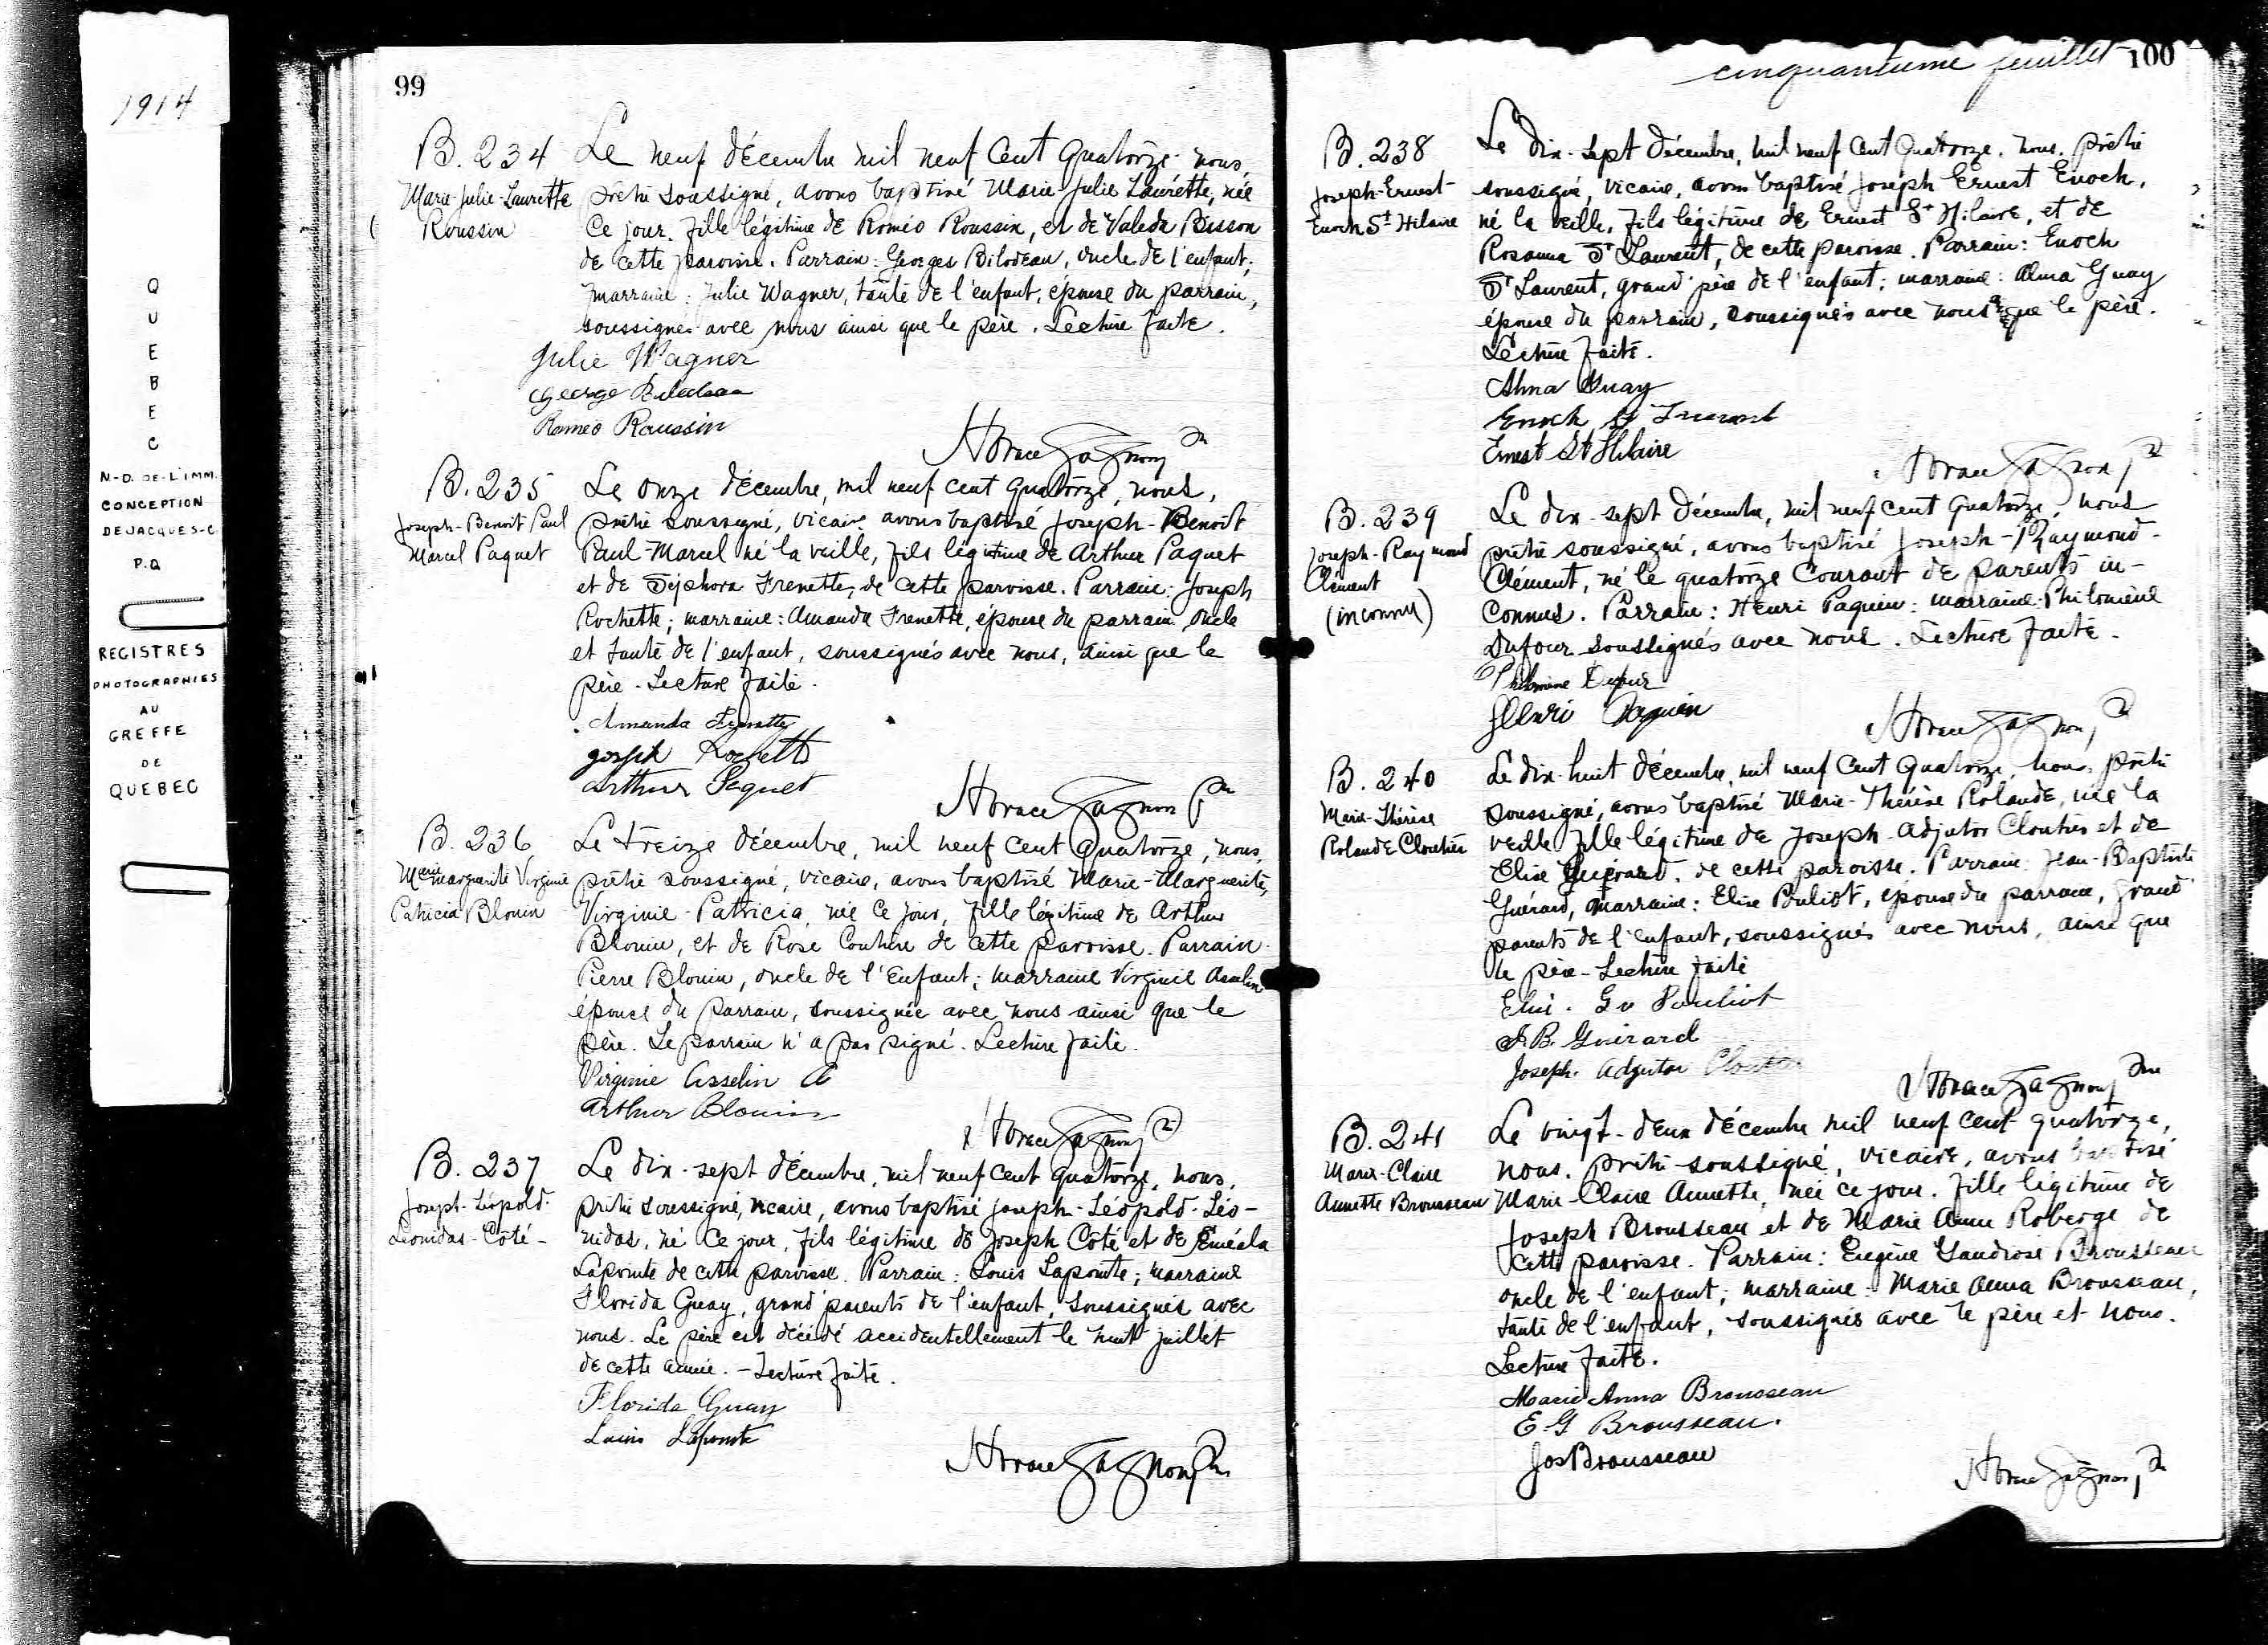 1914
QUEBEC
N-D. DE-L'IMM.
CONCEPTION
DE JACQUES-C.
P.Q
REGISTRES
PHOTOGRAPHIES
AU
GREFFE
DE
QUEBEC
99
B. 234
Marie-Julie-Laurette
Roussin
Le neuf décembre mil neuf cent quatorze nous,
prêtre soussigné, avons baptisé Marie-Julie Laurette, née
ce jour, fille légitime de Roméo Roussin, et de Valéda Bisson
de cette paroisse. Parrain: Georges Bilodeau, oncle de l'enfant;
marraine: Julie Wagner, tante de l'enfant, épouse du parrain,
soussignés avec nous ainsi que le père. Lecture faite.
Julie Wagner
George Bilodeau
Roméo Roussin
Horace Gagnon Ptre
B. 235
Joseph-Benoit Paul
Marcel Paquet
Le onze décembre, mil neuf cent quatorze, nous,
prêtre soussigné, vicaire avons baptisé Joseph-Benoit
Paul-Marcel né la veille, fils légitime de Arthur Paquet
et de Séphora Frenette, de cette paroisse. Parrain: Joseph
Rochette; marraine: Amanda Frenette, épouse du parrain oncle
et tante de l'enfant, soussignés avec nous, ainsi que le
père - Lecture faite.
Amanda Frenette
Joseph Rochette
Arthur Paquet
Horace Gagnon Ptre
B. 236
Marie Marguerite Virginie
Patricia Blouin
Le treize décembre, mil neuf cent quatorze, nous,
prêtre soussigné, vicaire, avons baptisé Marie-Marguerite,
Virginie-Patricia, née ce jour, fille légitime de Arthur
Blouin, et de Rose Couture de cette paroisse. Parrain
Pierre Blouin, oncle de l'enfant; marraine Virginie Asselin
épouse du parrain, soussignée avec nous ainsi que le
père. Le parrain n'a pas signé. Lecture faite.
Virginie Asselin
Arthur Blouin
Horace Gagnon Ptre
B. 237
Joseph-Léopold-
Léonidas-Côté-
Le dix-sept décembre, mil neuf cent quatorze, nous,
prêtre soussigné, vicaire, avons baptisé Joseph-Léopold-Léo-
nidas, né ce jour, fils légitime de Joseph Côté et de
Lapointe de cette paroisse. Parrain: Louis Lapointe; marraine
Florida Guay, grand'parents de l'enfant, soussignés avec
nous. Le père est décédé accidentellement le huit juillet
de cette année. - Lecture faite.
Florida Guay
Louis Lapointe
Horace Gagnon Ptre
cinquantième feuillet 100
B. 238
Joseph-Ernest-
Enoch St Hilaire
Le dix-sept décembre, mil neuf cent quatorze, nous, prêtre
soussigné, vicaire, avons baptisé Joseph Ernest Enoch,
né la veille, fils légitime de Ernest St Hilaire, et de
Rosanna St Laurent, de cette paroisse. Parrain: Enoch
St Laurent, grand'père de l'enfant; marraine: Alma Guay
épouse du parrain, soussignés avec nous que le père.
Lecture faite.
Alma Guay
Enoch St Laurent
Ernest St Hilaire
Horace Gagnon Ptre
B. 239
Joseph-Raymond
Clément
(inconnu)
Le dix-sept décembre, mil neuf cent quatorze, nous
prêtre soussigné, avons baptisé Joseph-Raymond-
Clément, né le quatorze courant de parents in-
connus. Parrain: Henri Paquin: marraine: Philomène
Dufour soussignés avec nous. Lecture faite.
Philomène Dufour
Henri Paquin
Horace Gagnon, Ptre
B. 240
Marie-Thérèse
Rolande Cloutier
Le dix-huit décembre, mil neuf cent quatorze, nous, prêtre
soussigné, avons baptisé Marie-Thérèse Rolande, née la
veille fille légitime de Joseph-Adjutor Cloutier et de
Elise Guérard, de cette paroisse. Parrain Jean-Baptiste
Guérard, marraine: Elise Pouliot, épouse du parrain, grand'
parents de l'enfant, soussignés avec nous, ainsi que
le père - Lecture faite
Pouliot
J.B. Guérard
Joseph. Adjutor Cloutier
Horace Gagnon Ptre
B. 241
Marie-Claire
Annette Brousseau
Le vingt-deux décembre mil neuf cent quatorze,
nous, prêtre soussigné, vicaire, avons baptisé
Marie Claire Annette, née ce jour. fille légitime de
Joseph Brousseau et de Marie Anne Roberge de
cette paroisse. Parrain: Eugène Brousseau
oncle de l'enfant; marraine: Marie Anna Brousseau,
tante de l'enfant, soussignés avec le père et nous.
Lecture faite.
Marie Anna Brousseau
E. G Brousseau.
Jos Brousseau
Horace Gagnon, Ptre